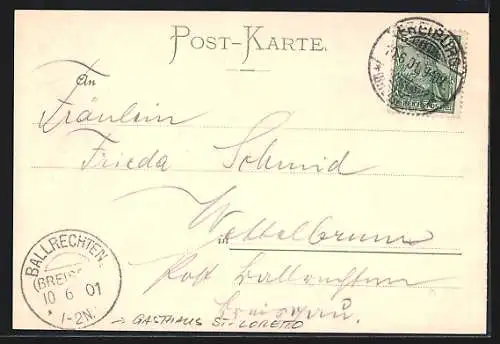 POST-KARTE.
An
Fräulein
Frieda Schmid
in Wettelbrunn
Post Ballrechten
Breisgau.
FREIBURG
BALLRECHTEN.
(BREISG
10 6 01
* 1-2N.
→ GASTHAUS ST-LORETTO